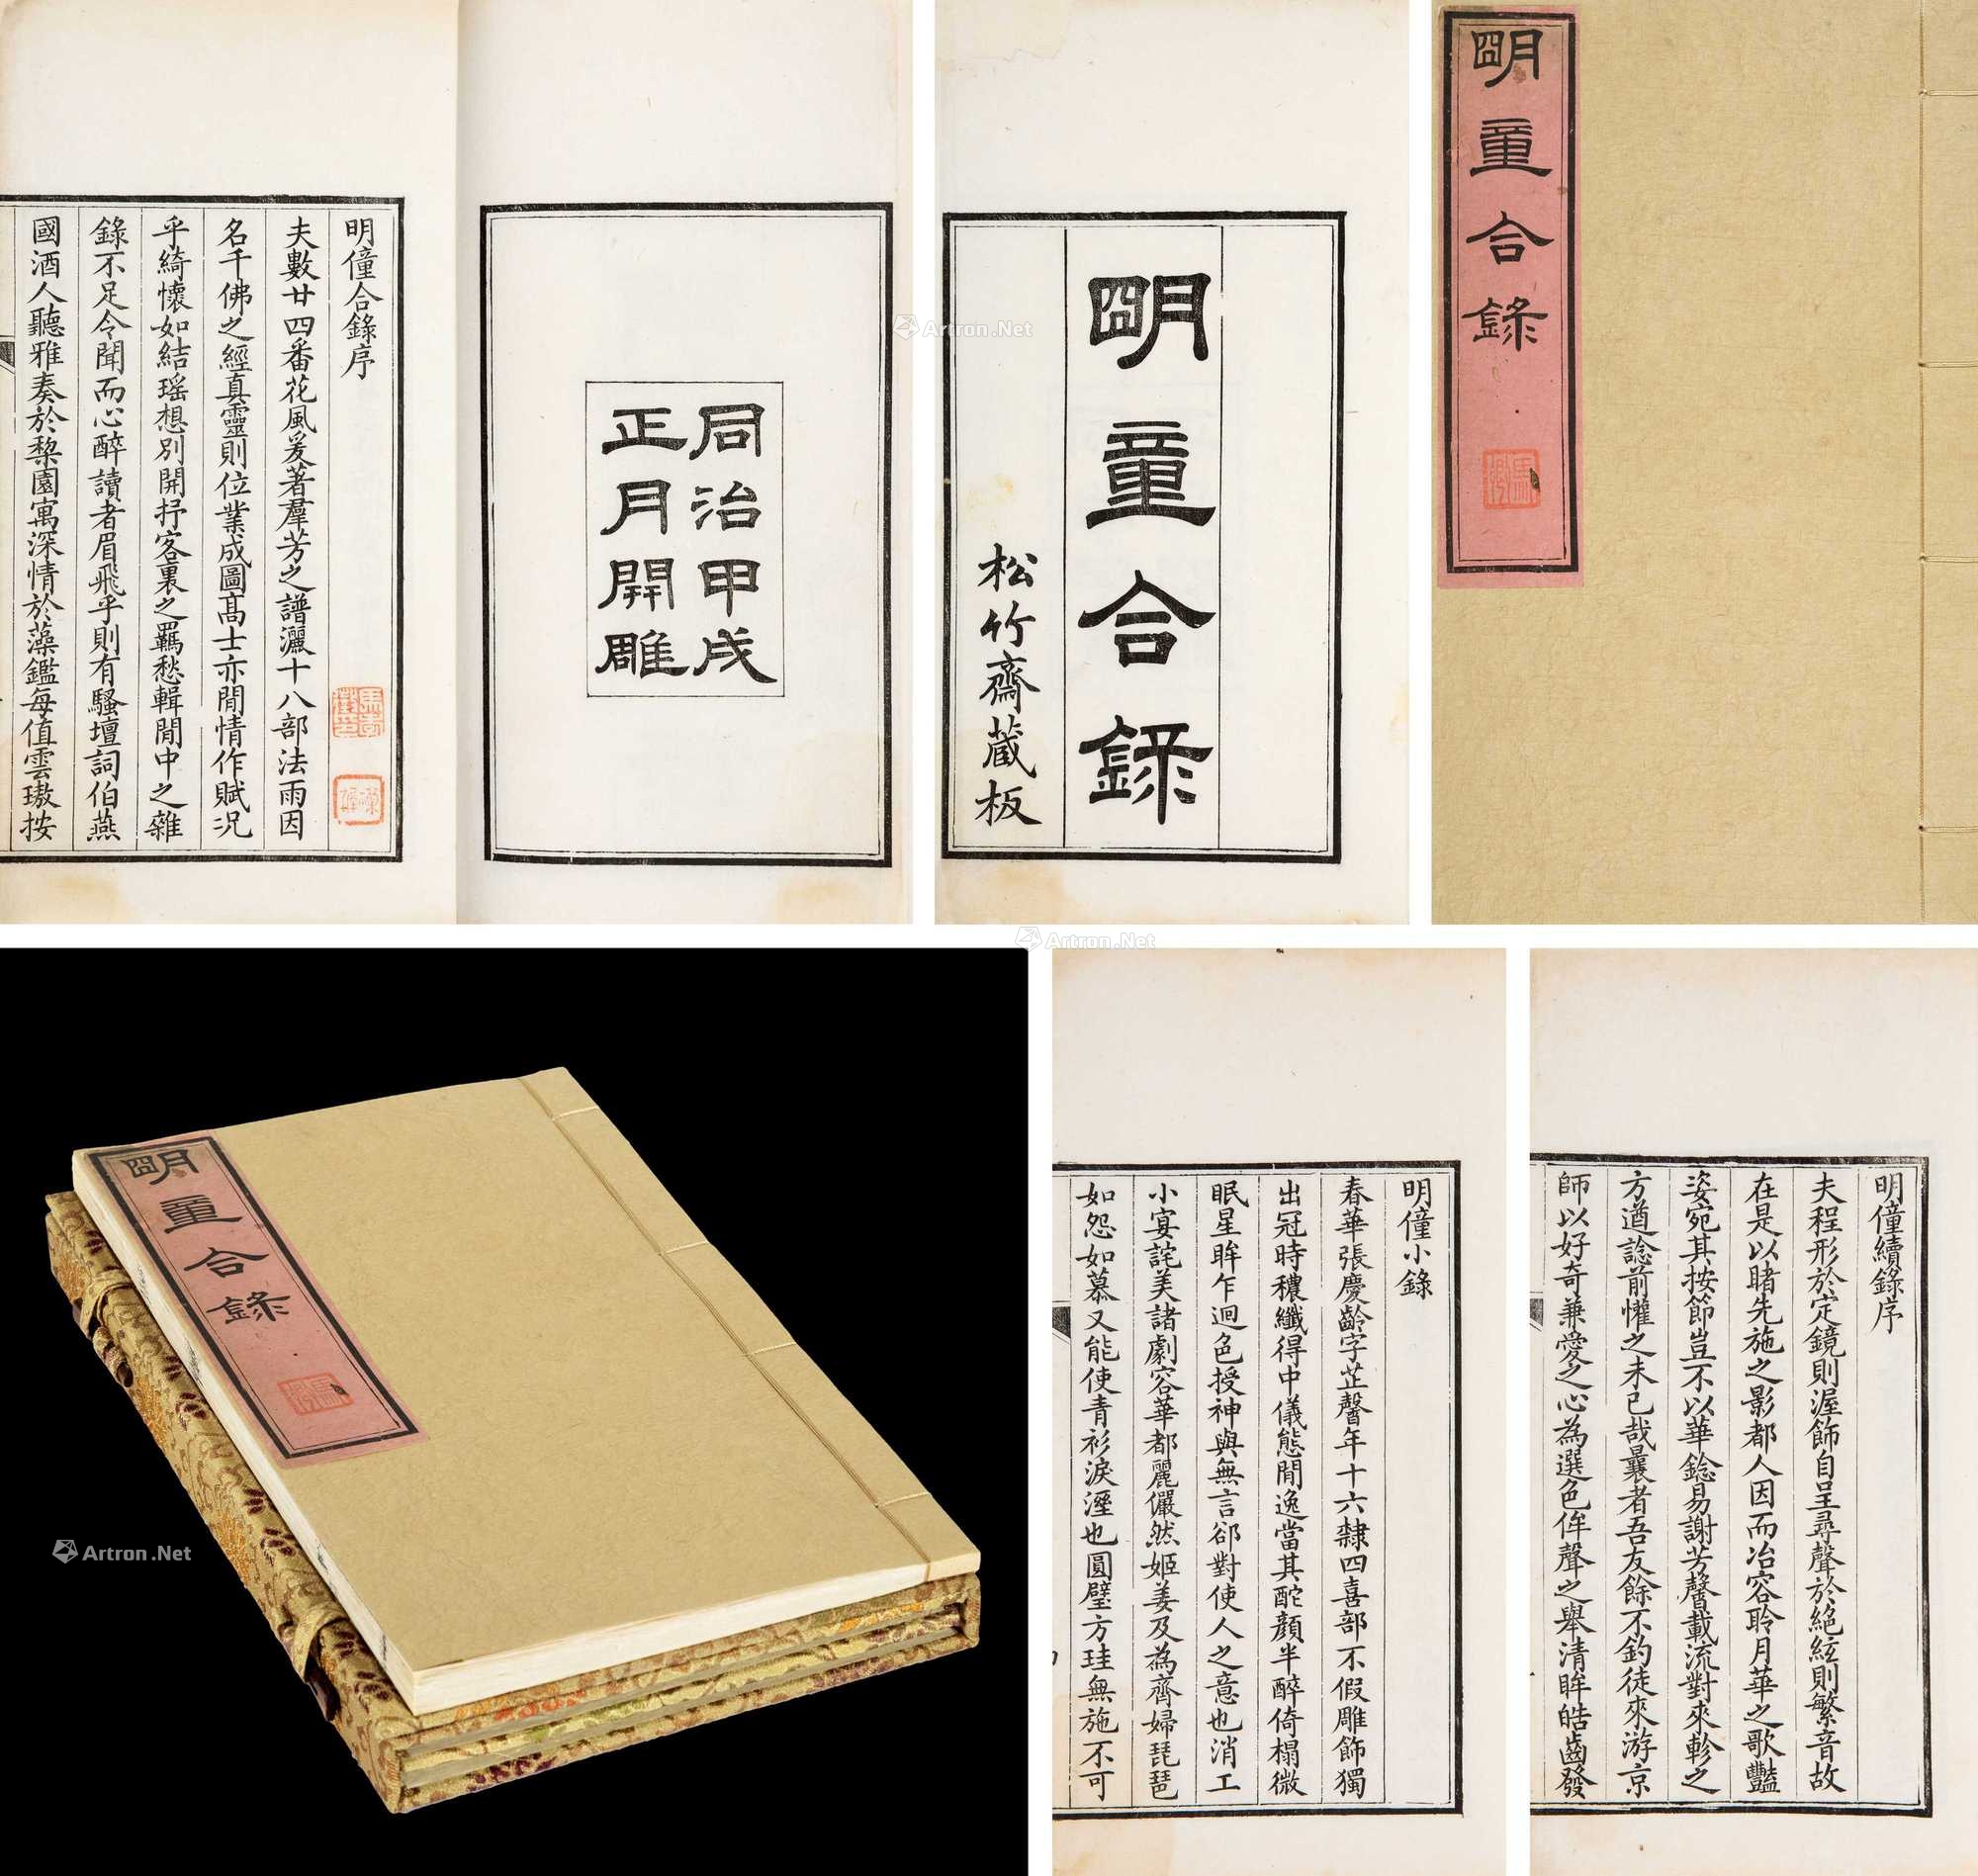 明僮合錄序
夫數廿四番花風爰著羣芳之譜灑十八部法雨因
名千佛之經真靈則位業成圖高士亦閒情作賦況
乎綺懷如結瑶想別開抒客裏之羈愁輯閒中之雜
錄不足令聞而心醉讀者眉飛乎則有騷壇詞伯燕
國酒人聽雅奏於棃園寓深情於藻鑑每值雲璈按
同治甲戌
正月開雕
明童合錄
松竹齋藏板
明童合錄
Artron.Net
Artron.Net
明童合錄
Artron.Net
明僮小錄
春華張慶齡字芷馨年十六隸四喜部不假雕飾獨
出冠時穠纖得中儀態閒逸當其酡顔半醉倚榻微
眠星眸乍迴色授神與無言郤對使人之意也消工
小宴詫美諸劇容華都麗儼然姬姜及為齊婦琵琶
如怨如慕又能使青衫淚溼也圓璧方珪無施不可
明僮續錄序
夫程形於定鏡則渥飾自呈尋聲於絕絃則繁音故
在是以睹先施之影都人因而冶容聆月華之歌豔
姿宛其按節豈不以華鋑易謝芳馨載流對來軫之
方遒諗前懽之未已哉曩者吾友餘不釣徒來游京
師以好奇兼愛之心為選色侔聲之舉清眸皓齒發